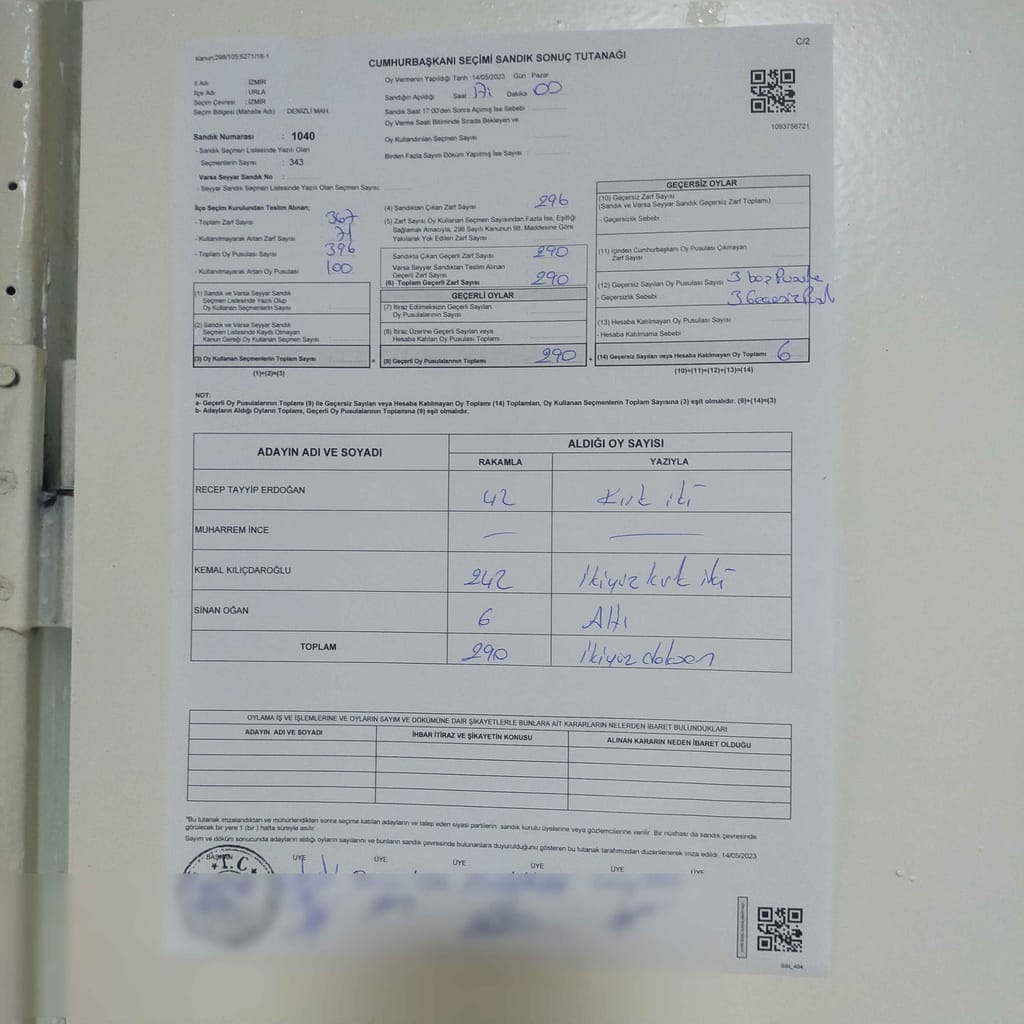 Kanun:298/105;6271/16-1
C/2
CUMHURBAŞKANI SEÇİMİ SANDIK SONUÇ TUTANAĞI
İl Adı : İZMİR
İlçe Adı : URLA
Seçim Çevresi : İZMİR
Seçim Bölgesi (Mahalle Adı) : DENİZLİ MAH.
Sandık Numarası : 1040
- Sandık Seçmen Listesinde Yazılı Olan
Seçmenlerin Sayısı : 343
Varsa Seyyar Sandık No :
- Seyyar Sandık Seçmen Listesinde Yazılı Olan Seçmen Sayısı:
Oy Vermenin Yapıldığı Tarih :14/05/2023 Gün : Pazar
Sandığın Açıldığı Saat 17 Dakika 00
Sandık Saat 17:00'den Sonra Açılmış İse Sebebi
Oy Verme Saati Bitiminde Sırada Bekleyen ve
Oy Kullandırılan Seçmen Sayısı
Birden Fazla Sayım Döküm Yapılmış İse Sayısı
1093756721
İlçe Seçim Kurulundan Teslim Alınan;
- Toplam Zarf Sayısı 367
- Kullanılmayarak Artan Zarf Sayısı 71
- Toplam Oy Pusulası Sayısı 396
- Kullanılmayarak Artan Oy Pusulası 100
(1) Sandık ve Varsa Seyyar Sandık
Seçmen Listesinde Yazılı Olup
Oy Kullanan Seçmenlerin Sayısı
(2) Sandık ve Varsa Seyyar Sandık
Seçmen Listesinde Kayıtlı Olmayan
Kanun Gereği Oy Kullanan Seçmen Sayısı
(3) Oy Kullanan Seçmenlerin Toplam Sayısı =
(1)+(2)=(3)
(4) Sandıktan Çıkan Zarf Sayısı 296
(5) Zarf Sayısı Oy Kullanan Seçmen Sayısından Fazla İse, Eşitliği
Sağlamak Amacıyla; 298 Sayılı Kanunun 98. Maddesine Göre
Yakılarak Yok Edilen Zarf Sayısı
Sandıkta Çıkan Geçerli Zarf Sayısı 290
Varsa Seyyar Sandıktan Teslim Alınan
Geçerli Zarf Sayısı
(6) Toplam Geçerli Zarf Sayısı 290
GEÇERLİ OYLAR
(7) İtiraz Edilmeksizin Geçerli Sayılan
Oy Pusulalarının Sayısı
(8) İtiraz Üzerine Geçerli Sayılan veya
Hesaba Katılan Oy Pusulası Sayısı
(9) Geçerli Oy Pusulalarının Toplamı 290 +
GEÇERSİZ OYLAR
(10) Geçersiz Zarf Sayısı
(Sandık ve Varsa Seyyar Sandık Geçersiz Zarf Toplamı)
- Geçersizlik Sebebi
(11) İçinden Cumhurbaşkanı Oy Pusulası Çıkmayan
Zarf Sayısı
(12) Geçersiz Sayılan Oy Pusulası Sayısı 3 boş
- Geçersizlik Sebebi 3
(13) Hesaba Katılmayan Oy Pusulası Sayısı
- Hesaba Katılmama Sebebi
(14) Geçersiz Sayılan veya Hesaba Katılmayan Oy Toplamı 6
(10)+(11)+(12)+(13)=(14)
NOT:
a- Geçerli Oy Pusulalarının Toplamı (9) ile Geçersiz Sayılan veya Hesaba Katılmayan Oy Toplamı (14) Toplamları, Oy Kullanan Seçmenlerin Toplam Sayısına (3) eşit olmalıdır. (9)+(14)=(3)
b- Adayların Aldığı Oyların Toplamı, Geçerli Oy Pusulalarının Toplamına (9) eşit olmalıdır.
ADAYIN ADI VE SOYADI
ALDIĞI OY SAYISI
RAKAMLA YAZIYLA
RECEP TAYYİP ERDOĞAN 42 Kırk iki
MUHARREM İNCE — —
KEMAL KILIÇDAROĞLU 242 ikiyüz kırk iki
SİNAN OĞAN 6 Altı
TOPLAM 290 ikiyüz doksan
OYLAMA İŞ VE İŞLEMLERİNE VE OYLARIN SAYIM VE DÖKÜMÜNE DAİR ŞİKAYETLERLE BUNLARA AİT KARARLARIN NELERDEN İBARET BULUNDUKLARI
ADAYIN ADI VE SOYADI İHBAR İTİRAZ VE ŞİKAYETİN KONUSU ALINAN KARARIN NEDEN İBARET OLDUĞU
*Bu tutanak imzalandıktan ve mühürlendikten sonra seçime katılan adayların ve talep eden siyasi partilerin sandık kurulu üyelerine veya gözlemcilerine verilir. Bir nüshası da sandık çevresinde
görülecek bir yere 1 (bir ) hafta süreyle asılır.
Sayım ve döküm sonucunda adayların aldığı oyların sayılarını ve bunların sandık çevresinde bulunanlara duyurulduğunu gösteren bu tutanak tarafımızdan düzenlenerek imza edildi. 14/05/2023
BAŞKAN ÜYE ÜYE ÜYE ÜYE ÜYE ÜYE
T.C
SSI_404